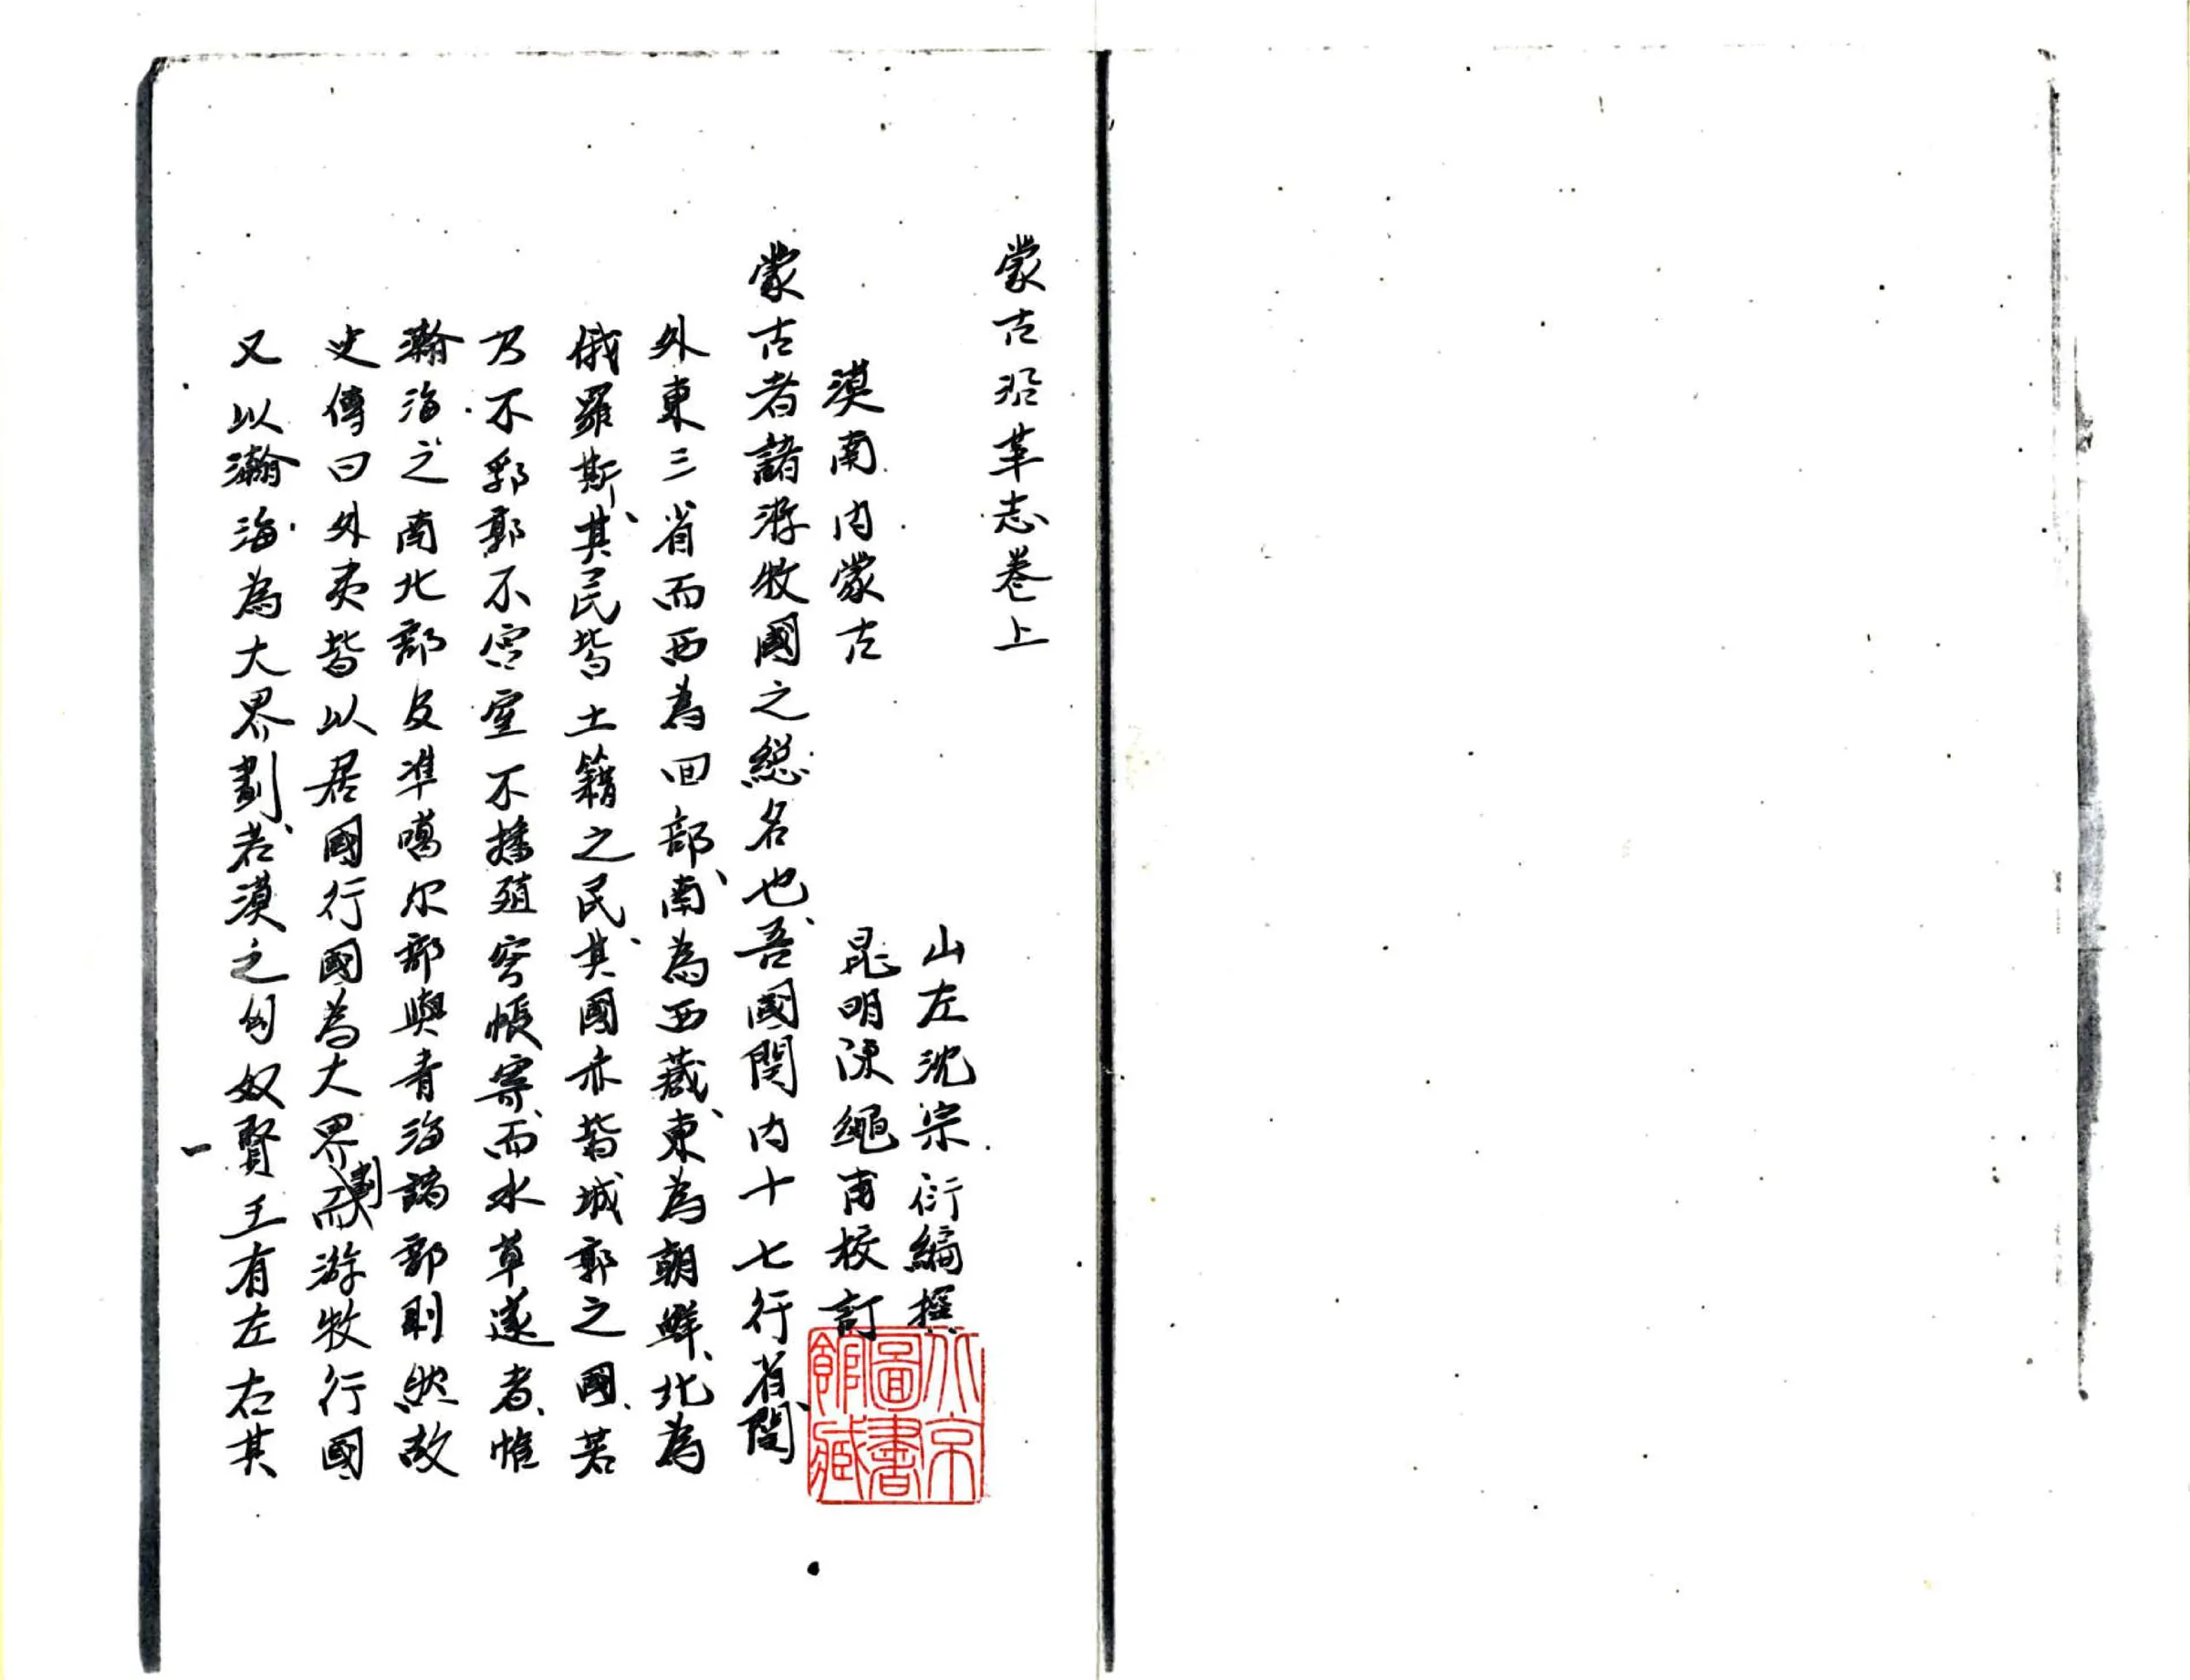 蒙古沿革志卷上
山左沈宗衍編撰
漠南内蒙古
昆明陳繩甫校訂
蒙古者諸游牧國之総名也、吾國関内十七行省、関
外東三省而西為回部、南為西藏、東為朝鮮、北為
俄羅斯、其民皆土籍之民、其國亦皆城郭之國、若
乃不郛郭不宮室不播殖穹帳寄、而水草逐者、惟
瀚海之南北部及準噶尔部與青海諸部則然故
史傳曰外夷皆以居國行國為大界劃而游牧行國
又以瀚海為大界劃、若漠之匈奴賢王有左右其
一
北京圖書館藏